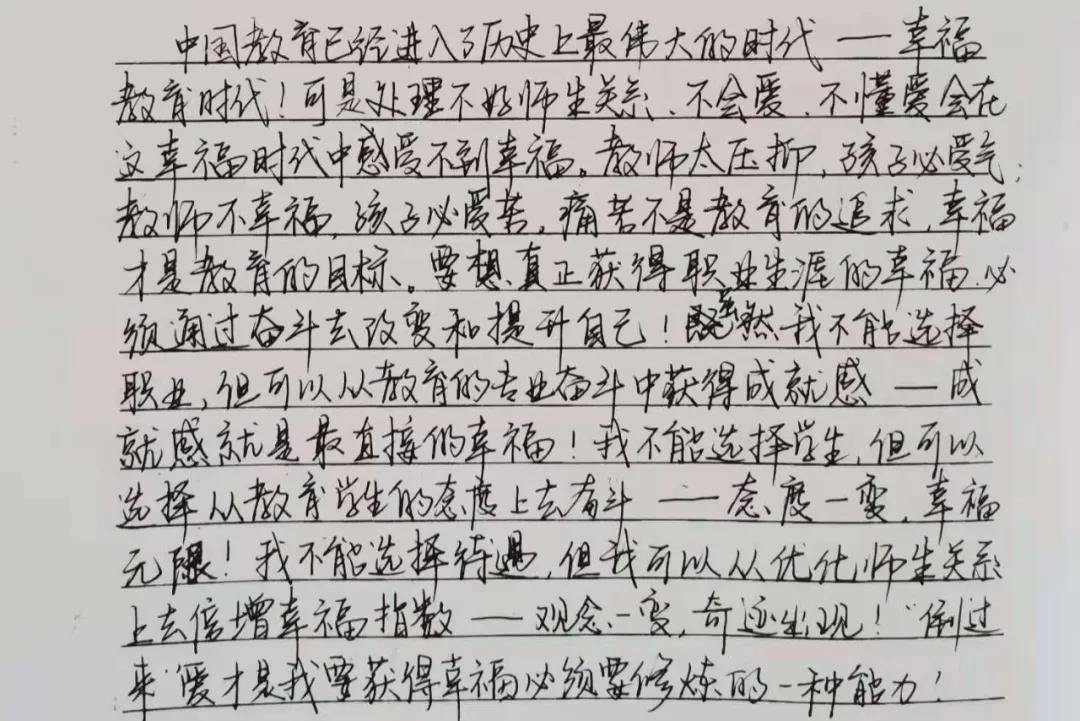 中国教育已经进入了历史上最伟大的时代——幸福
教育时代！可是处理不好师生关系、不会爱、不懂爱会在
这幸福时代中感受不到幸福。教师太压抑，孩子必受气；
教师不幸福，孩子必受苦。痛苦不是教育的追求，幸福
才是教育的目标。要想真正获得职业生涯的幸福，必
须通过奋斗去改变和提升自己！虽然我不能选择
职业，但可以从教育的专业奋斗中获得成就感——成
就感就是最直接的幸福！我不能选择学生，但可以
选择从教育学生的态度上去奋斗——态度一变，幸福
无限！我不能选择待遇，但我可以从优化师生关系
上去倍增幸福指数——观念一变，奇迹出现！“倒过
来”爱才是我要获得幸福必须要修炼的一种能力！